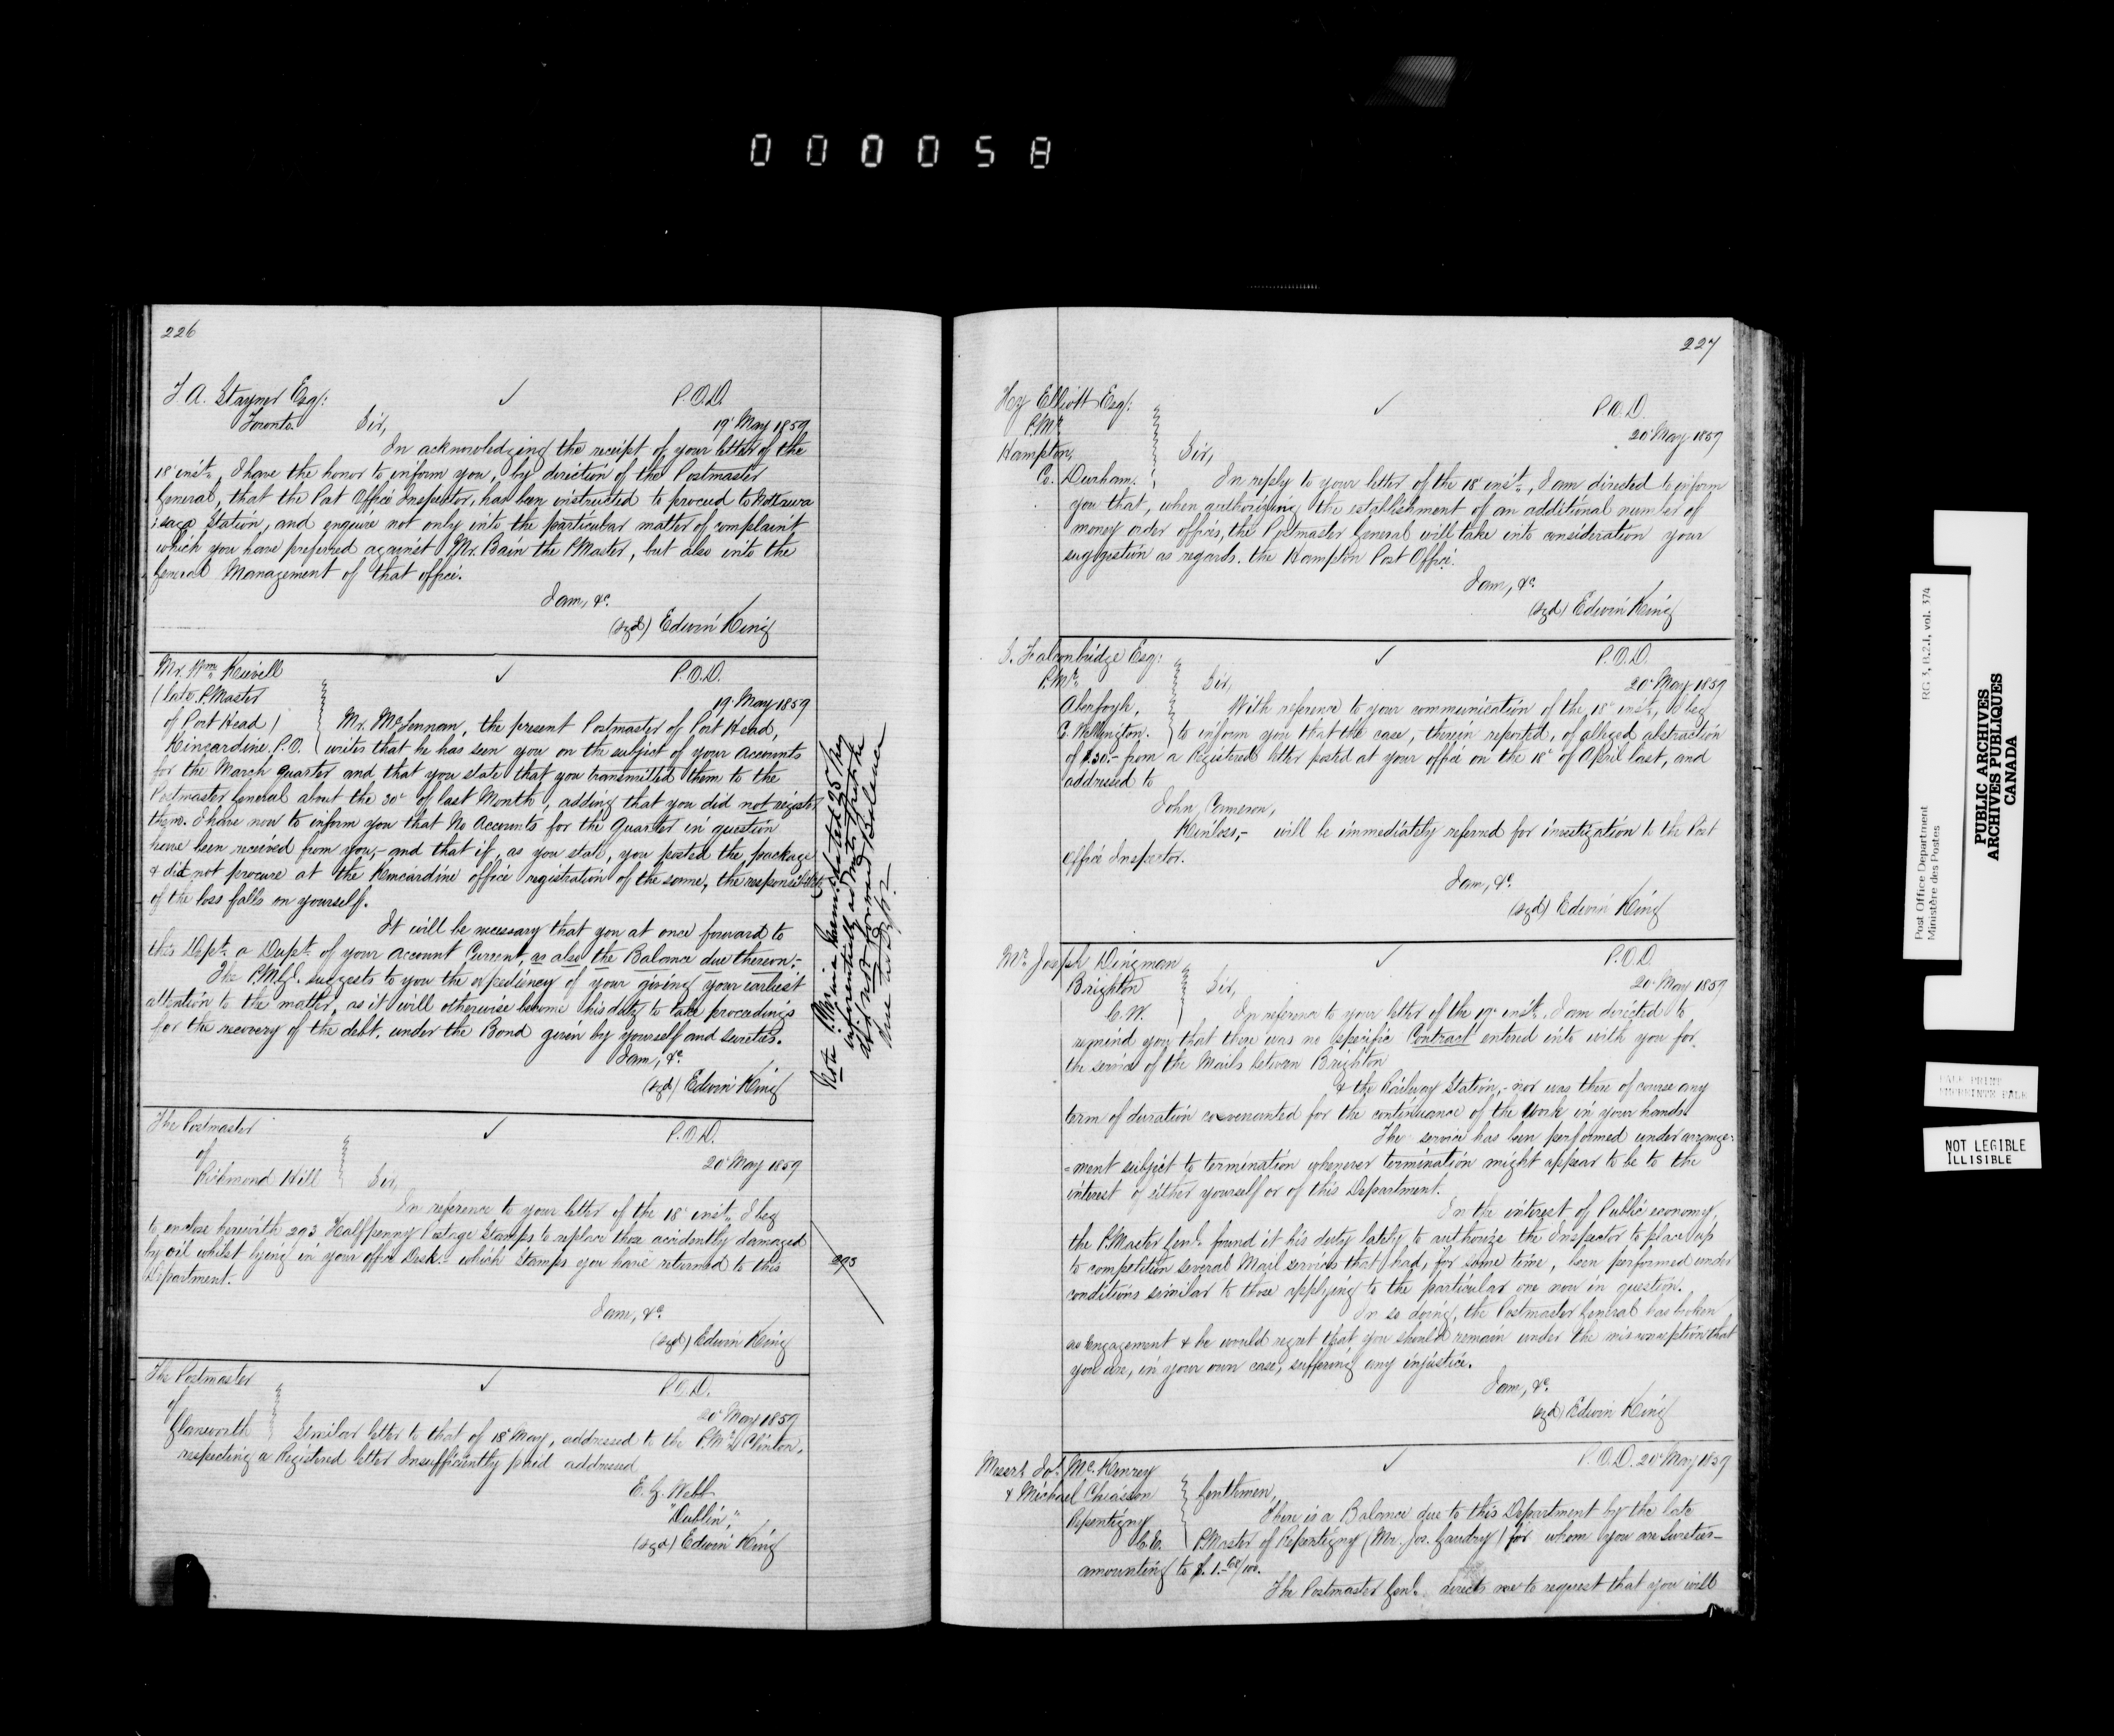 000058
226
J. A. Stayner Esq:
P.O.D.
Toronto
Sir,
19 May 1859
In acknowledging the receipt of your letter of the
18 inst., I have the honor to inform you, by direction of the Postmaster
General, that the Post Office Inspector, has been instructed to proceed to Nottawa
:saga Station, and enquire not only into the particular matter of complaint
which you have preferred against Mr. Bain the P.Master, but also into the
General Management of that office.
I am, &c.
(sgd) Edwin King
Mr. Wm.
P.O.D.
(late P.Master
19 May 1859
of Port Head)
Mr. McLennan, the present Postmaster of Port Head,
Kincardine. P.O.
writes that he has seen you on the subject of your accounts
for the March Quarter and that you state that you transmitted them to the
Postmaster General about the 30 of last Month, adding that you did not register
them. I have now to inform you that No Accounts for the Quarter in question
have been received from you,- and that if, as you state, you posted the package
& did not procure at the Kincardine office registration of the same, the responsibility
of the loss falls on yourself.
It will be necessary that you at once forward to
this Dept. a Dupt. of your Account Current, as also the Balance due thereon:-
The P.M.G. suggests to you the expediency of your giving your earliest
attention to the matter, as it will otherwise become his duty to take proceedings
for the recovery of the debt, under the Bond given by yourself and sureties.
I am, &c.
(sgd) Edwin King
Note
dated 25 May
inferentially admits that he
did not forward Balance
due
The Postmaster
P.O.D.
of
20 May 1859
Richmond Hill
Sir,
In reference to your letter of the 18 inst., I beg
to enclose herewith 293 Halfpenny Postage Stamps to replace those accidently damaged
by oil whilst lying in your office Desk:- which Stamps you have returned to this
Department.
293
I am, &c.
(sgd) Edwin King
The Postmaster
P.O.D.
of
20 May 1859
Glanworth
Similar letter to that of 18 May, addressed to the P.Mr. Clinton,
respecting a Registered letter Insufficiently paid addressed
E. G. Webb
"Dublin",
(sgd) Edwin King
227
Hy Elliott Esq:
P.O.D.
P.Mr.
20 May 1859
Hampton,
Sir,
Co. Durham.
In reply to your letter of the 18 inst., I am directed to inform
you that, when authorizing the establishment of an additional number of
money order offices, the Postmaster General will take into consideration your
suggestion as regards the Hampton Post Office.
I am, &c.
(sgd) Edwin King
S. Falconbridge Esq:
P.O.D.
P.Mr.
Sir,
20 May 1859
Aberfoyle,
With reference to your communication of the 18 inst., I beg
Co. Wellington.
to inform you that the case, therein reported, of alleged abstraction
of $30.- from a Registered letter posted at your office on the 18 of April last, and
addressed to
John Cameron,
Kinloss,- will be immediately referred for investigation to the Post
Office Inspector.
I am, &c.
(sgd) Edwin King
Mr. Joseph Dingman
P.O.D.
Brighton
Sir,
20 May 1859
C.W.
In reference to your letter of the 19 inst. I am directed to
remind you that there was no specific Contract entered into with you for
the service of the Mails between Brighton
& the Railway Station,- nor was there of course any
term of duration covenanted for the continuance of the Work in your hands.
The service has been performed under arrange:
=ment subject to termination whenever termination might appear to be to the
interest of either yourself or of this Department.
In the interest of Public economy,
the P.Master Genl. found it his duty lately to authorize the Inspector to place up
to competition several Mail services that had, for some time, been performed under
conditions similar to those applying to the particular one now in question.
In so doing, the Postmaster General has broken
no Engagement & he would regret that you should remain under the misconception that
you are, in your own case, suffering any injustice.
I am, &c.
(sgd) Edwin King
Messrs Jos. McKenrey
P.O.D. 20 May 1859
& Michael Chiasson
Gentlemen,
Repentigny
There is a Balance due to this Department by the late
C.E.
P.Master of Repentigny (Mr. Jos. Gaudry) for whom you are sureties-
amounting to $1.60/100.
The Postmaster Genl. directs me to request that you will
Post Office Department
Ministère des Postes
RG 3, B.2.1, vol. 374
PUBLIC ARCHIVES
ARCHIVES PUBLIQUES
CANADA
PALE PRINT
IMPRIMÉ PÂLE
NOT LEGIBLE
ILLISIBLE